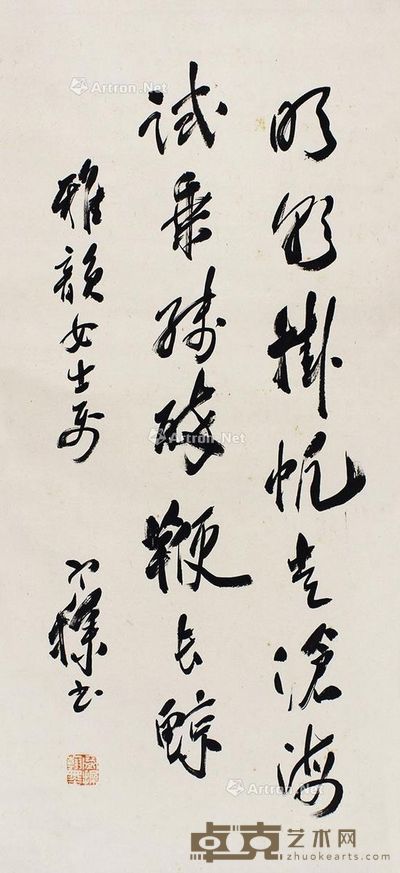 明朝掛帆走滄海
試乘殘醉鞭長鯨
雅韻女士
書
Artron.Net
Artron.Net
Artron.Net
卓克艺术网
zhuokearts.com